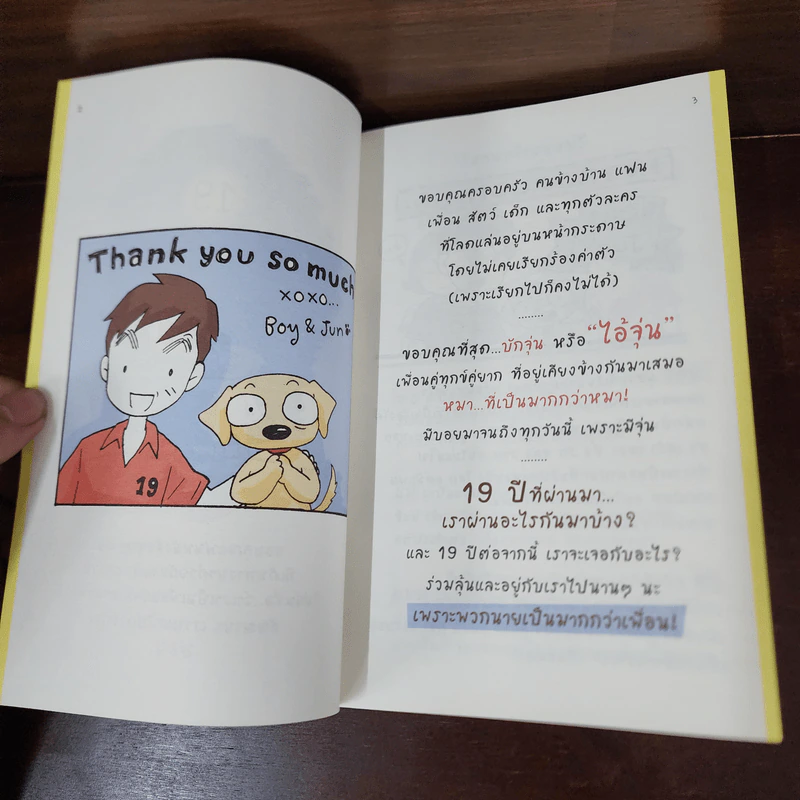 2
Thank you so much
xoxo...
Boy & Jun
19
3
ขอบคุณครอบครัว คนข้างบ้าน แฟน
เพื่อน สัตว์ เด็ก และทุกตัวละคร
ที่โลดแล่นอยู่บนหน้ากระดาษ
โดยไม่เคยเรียกร้องค่าตัว
(เพราะเรียกไปก็คงไม่ได้)
........
ขอบคุณที่สุด...บักจุ่น หรือ “ไอ้จุ่น”
เพื่อนคู่ทุกข์คู่ยาก ที่อยู่เคียงข้างกันมาเสมอ
หมา...ที่เป็นมากกว่าหมา!
มีบอยมาจนถึงทุกวันนี้ เพราะมีจุ่น
........
19 ปีที่ผ่านมา...
เราผ่านอะไรกันมาบ้าง?
และ 19 ปีต่อจากนี้ เราจะเจอกับอะไร?
ร่วมลุ้นและอยู่กับเราไปนานๆ นะ
เพราะพวกนายเป็นมากกว่าเพื่อน!